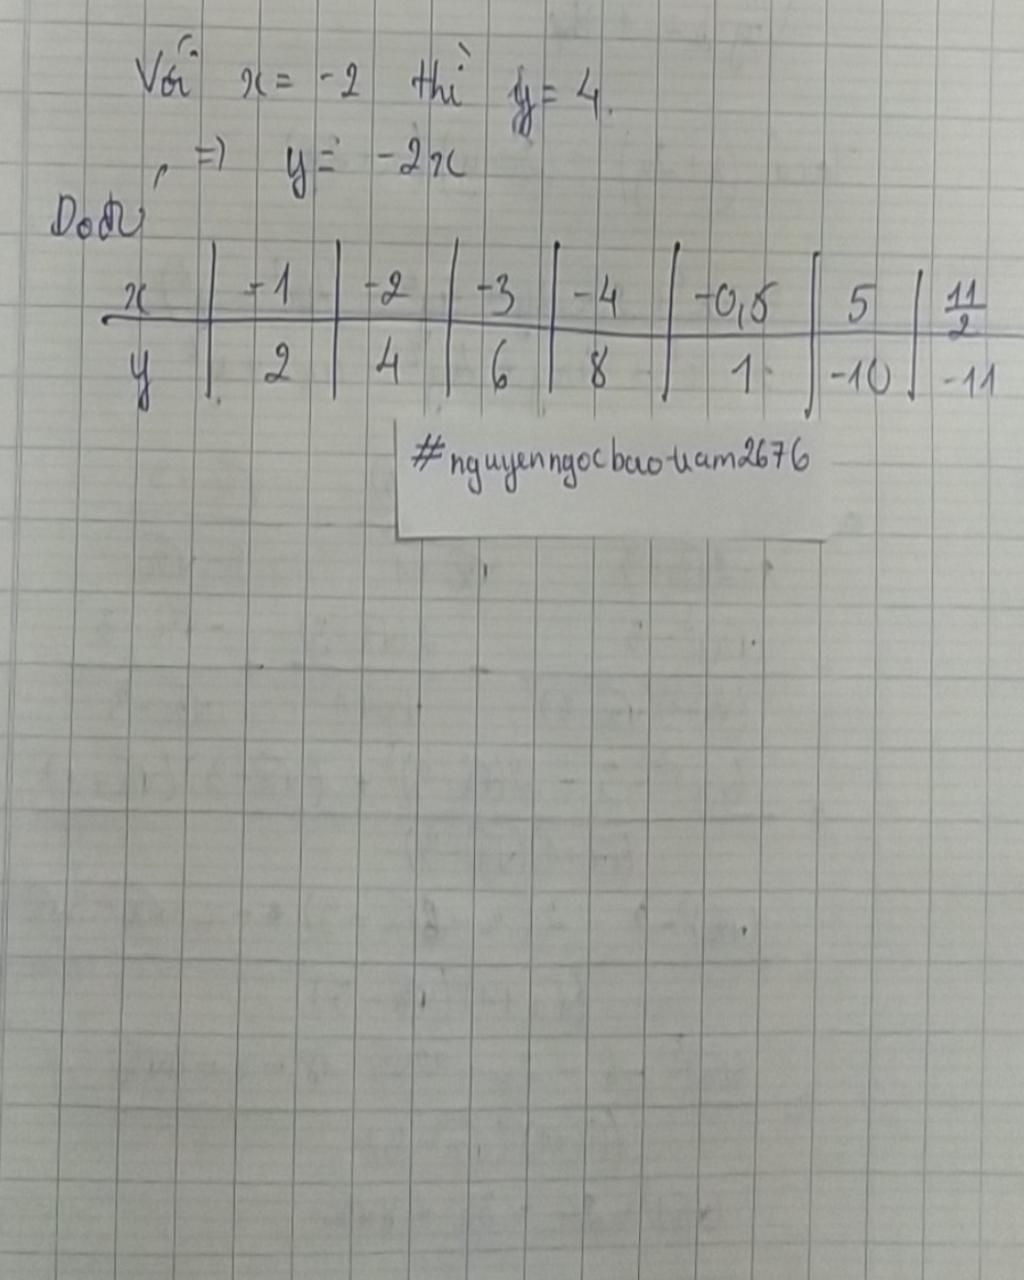 Với x = -2 thì y = 4.
=> y = -2x
Do đó
x | -1 | -2 | -3 | -4 | -0,5 | 5 | 11/2
y | 2 | 4 | 6 | 8 | 1 | -10 | -11
#nguyenngocbaotram2676